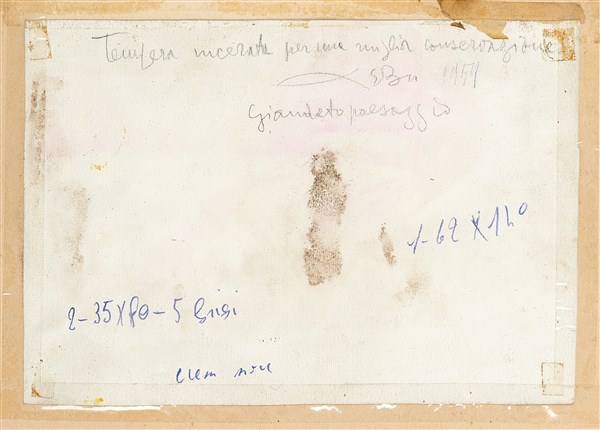 Tempera incerata per una miglior conservazione
1959
Giandeto paesaggio
1-62 X 1h°
2-35X80-5